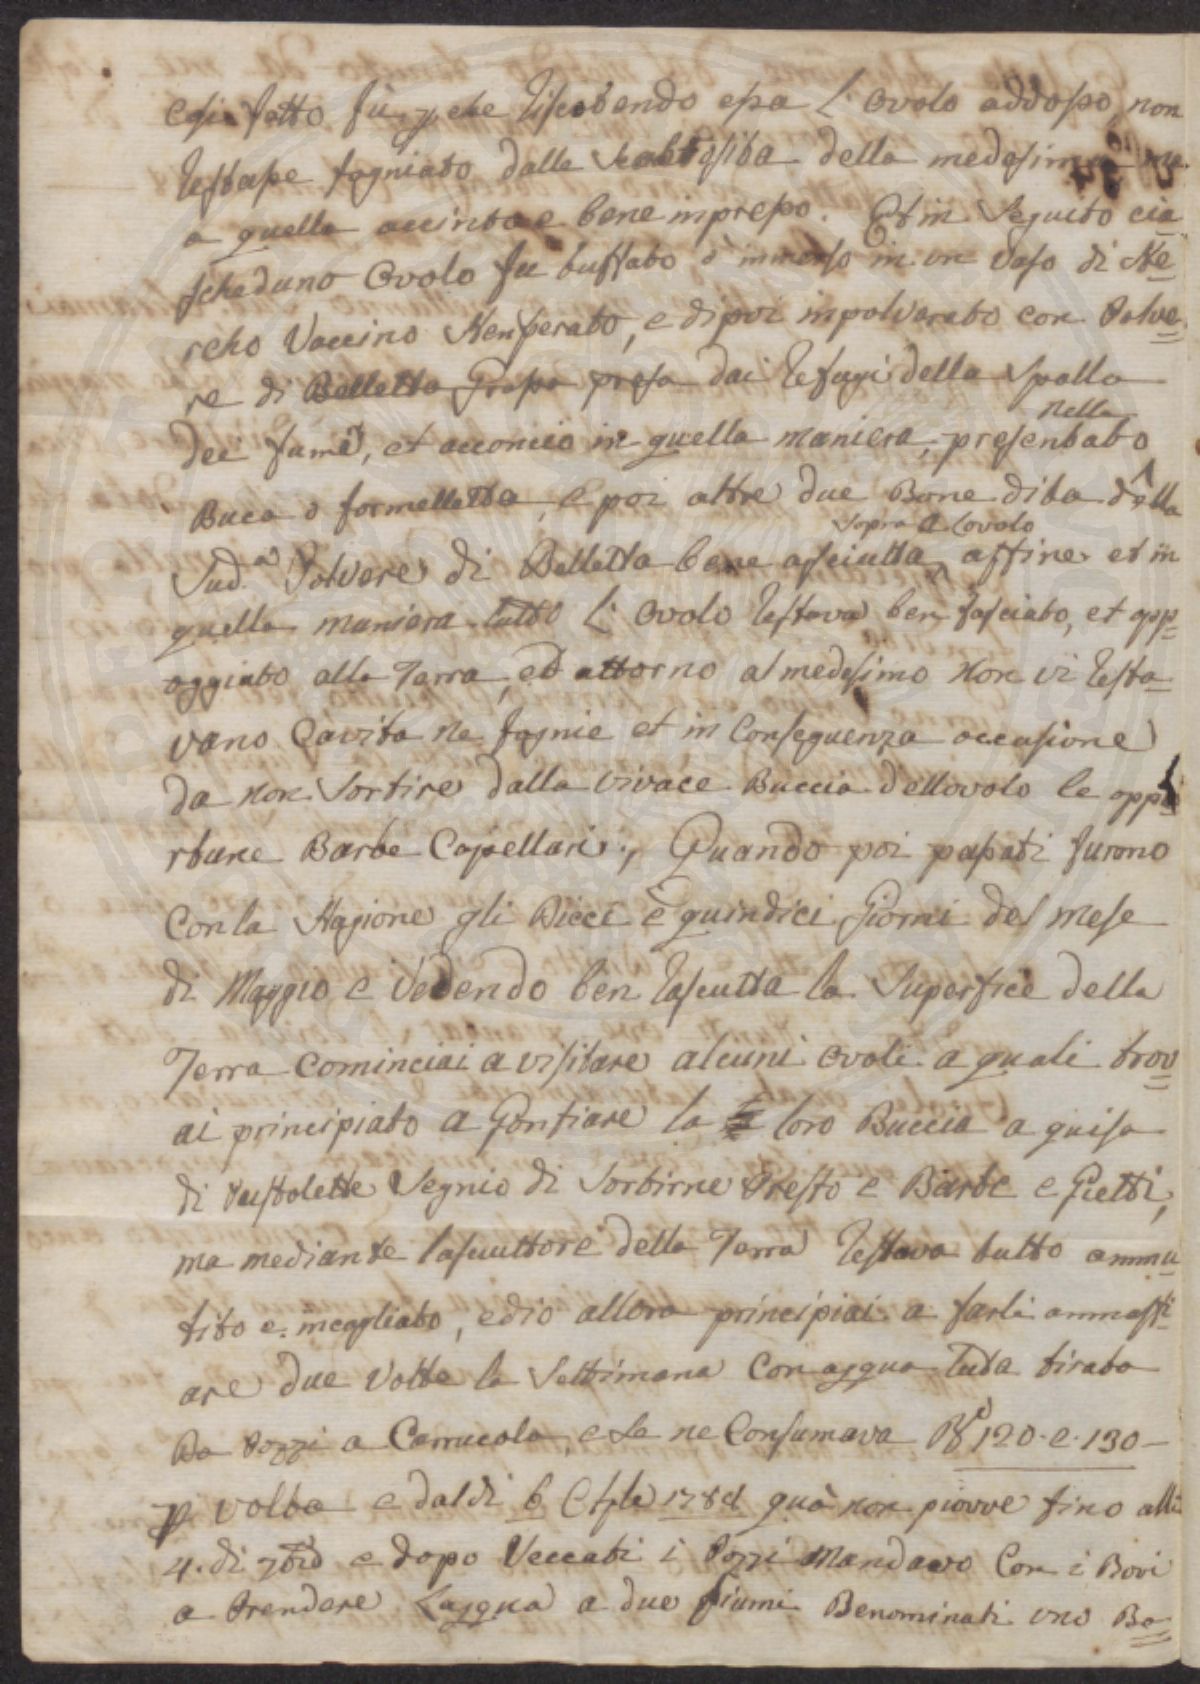 Così fatto fù p che riscebendo essa l' Ovolo addosso, non
restasse sogniato dalla Scabrosità della medesima me
a quella accinto e bene inpresso. Et in Seguito cia
scheduno Ovolo fu tuffato o immerso in un Vaso di Ste
rcho Vaccino Stenperato, e dipoi inpolverato con Polve
re di Belletta Grassa presa dai refugi della Spalla
dei fumi, et acconcio in quella maniera, presentato
nella
Buca o formelletta, e poi altre due Bone dita della
sopra a lovolo
Sud.a Polvere di Belletta bene asciutta affine et in
quella maniera tutto l' Ovolo restava ben fasciato, et app
oggiato alla Terra, ed attorno al medesimo non vi resta
vano Cavità ne fognie et in Conseguenza occasione
da non Sortire dalla vivace Buccia dellovolo le oppo
rtune Barbe Capellari; Quando poi passati furono
Con la Stagione gli Dieci e quindici Giorni del mese
di Maggio e Vedendo ben rasciutta la Superfice della
Terra Cominciai a visitare alcuni Ovoli a quali trov
ai principiato a Gonfiare la loro Buccia a guisa
di Pustolette Segnio di Sortirne Presto e Barbe e Getti,
ma mediante lasciuttore della Terra restava tutto ammu
tito e, edio allora principiai a farli annaffi
are due Volte la Settimana Con acqua tutta tirata
Da Pozzi a Carrucola, e Se ne Consumava 120. e. 130
p volta e daldi 6 1784 quà non piovve fino alli
4. di e dopo Seccati i Pozzi Mandavo Con i Bovi
a Prendere Lacqua a due fiumi Denominati uno Bo